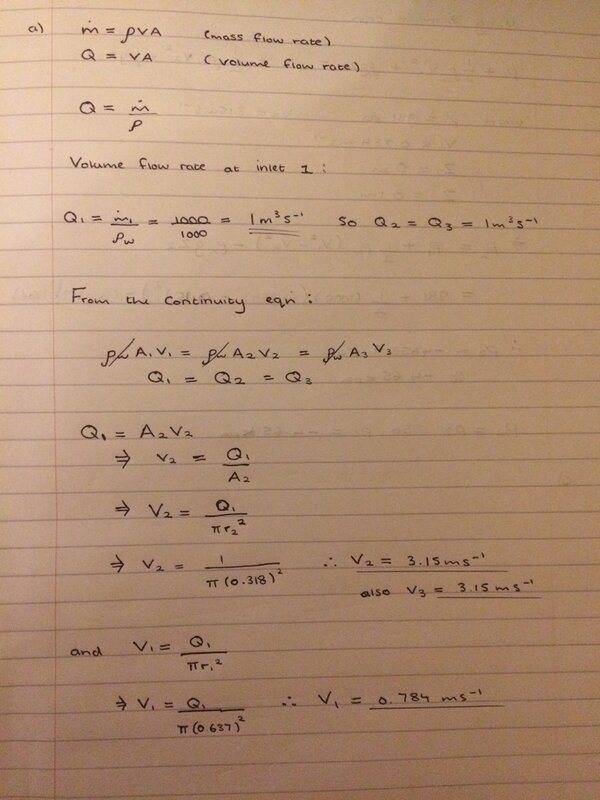 a) ṁ = ρVA (mass flow rate)
Q = VA (volume flow rate)
Q = ṁ/ρ
Volume flow rate at inlet 1 :
Q₁ = ṁ₁/ρw = 1000/1000 = 1m³s⁻¹ so Q₂ = Q₃ = 1m³s⁻¹
From the continuity eqn :
ρw A₁V₁ = ρw A₂V₂ = ρw A₃V₃
Q₁ = Q₂ = Q₃
Q₁ = A₂V₂
⇒ V₂ = Q₁/A₂
⇒ V₂ = Q₁/πr₂²
⇒ V₂ = 1/π(0.318)² ∴ V₂ = 3.15ms⁻¹
also V₃ = 3.15ms⁻¹
and V₁ = Q₁/πr₁²
⇒ V₁ = Q₁/π(0.637)² ∴ V₁ = 0.784 ms⁻¹